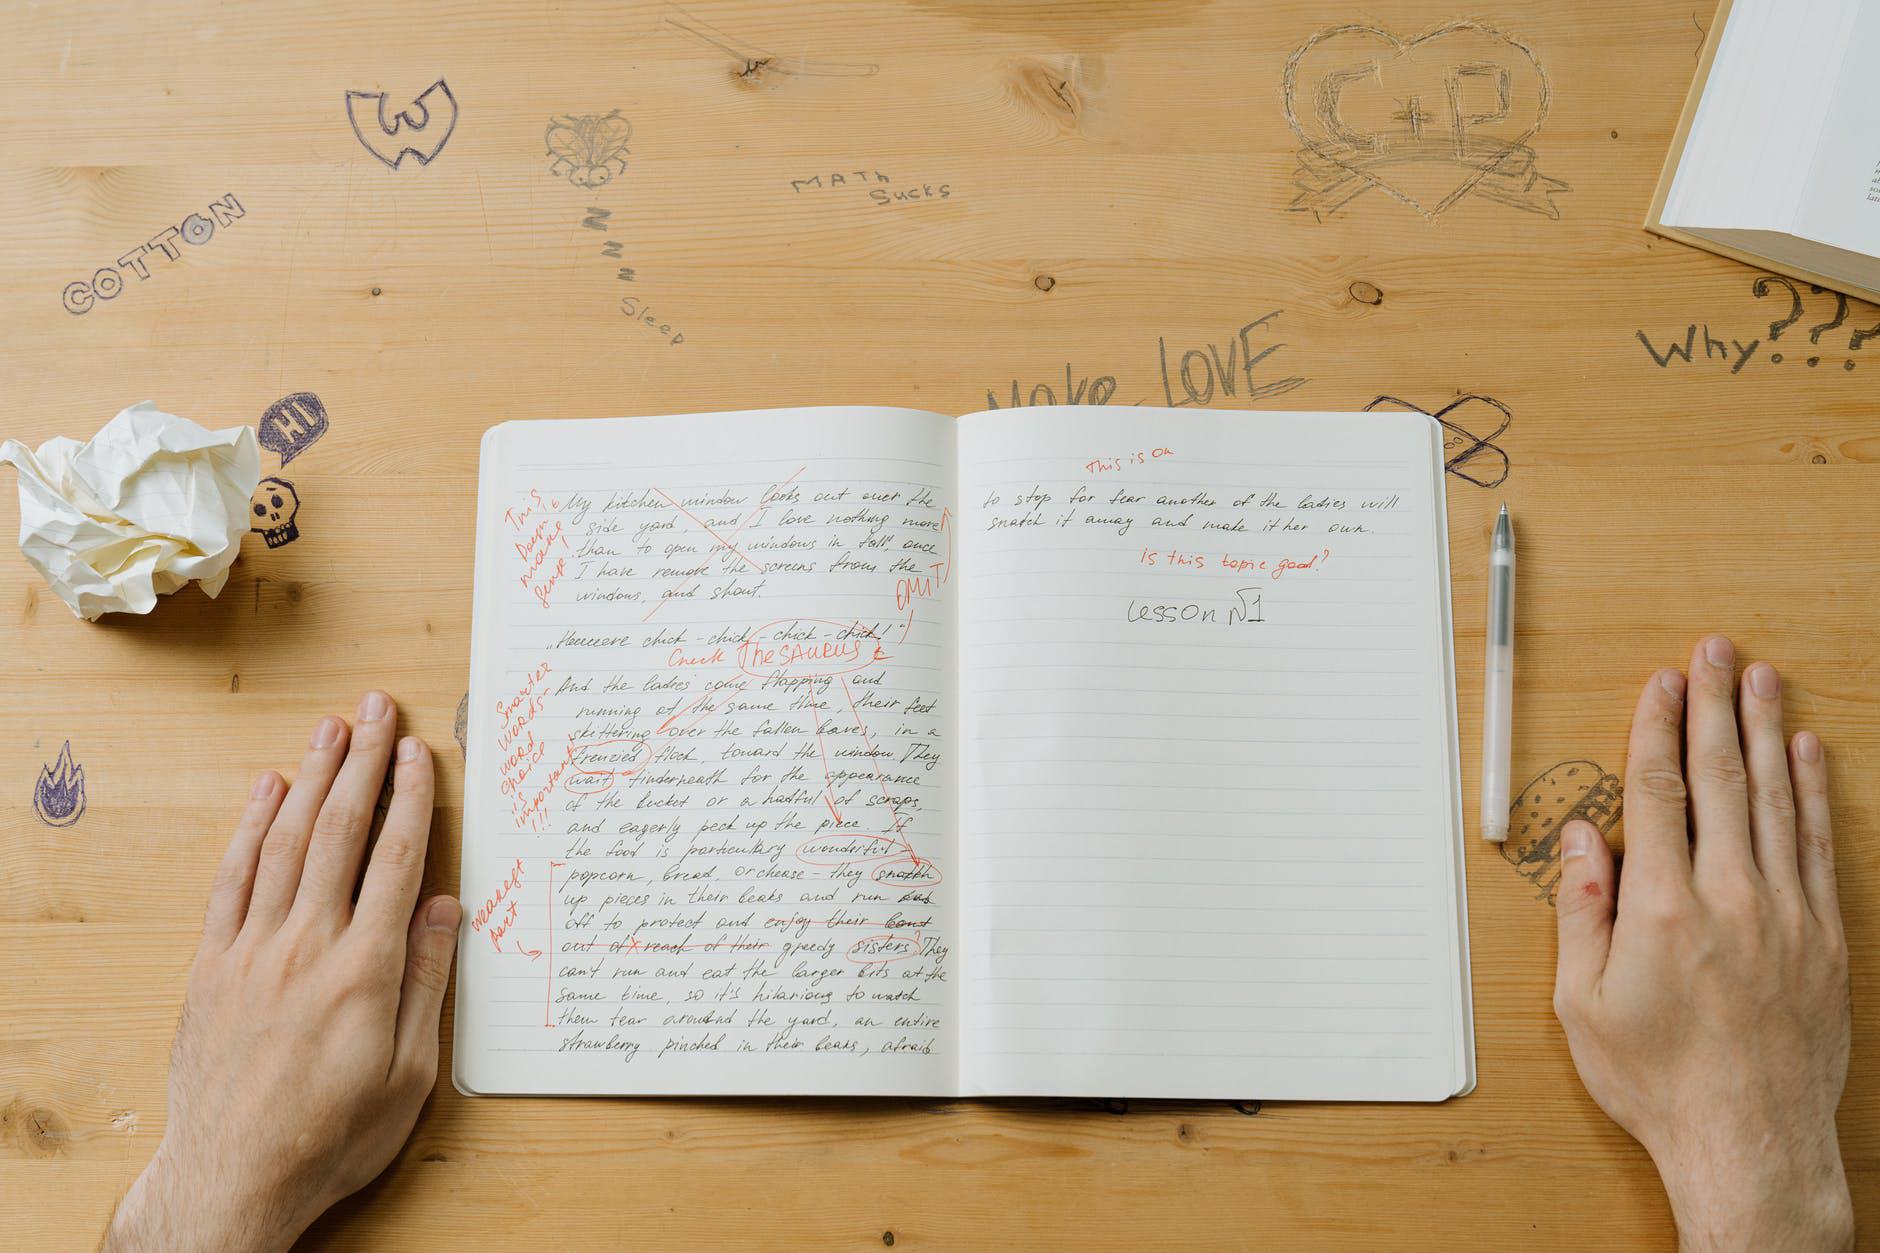 W
COTTON
MATH
SUCKS
C+P
Sleep
Why???
Make LOVE
HI
This is on
This
Doesn't
make
sense!
My kitchen window looks out over the
side yard and I love nothing more
than to open my windows in fall, once
I have remove the screens from the
windows, and shout.
OMIT
chick - chick - chick - chick!"
Check Thesaurus
Smarter
words-
word
choice
is
important
!!!
And the ladies come flapping and
running at the same time, their feet
skittering over the fallen leaves, in a
frenzied flock, toward the window. They
wait underneath for the appearance
of the bucket or a hadful of scraps,
and eagerly peck up the piece. If
the food is particullary wonderful -
weakest
part
popcorn, bread, or chease - they snatch
up pieces in their beaks and run
off to protect and enjoy their
out of reach of their greedy sisters? They
can't run and eat the larger bits at the
same time, so it's hilarious to watch
them tear around the yard, an entire
strawberry pinched in their beaks, afraid
to stop for fear another of the ladies will
snatch it away and make it her own.
is this topic good?
Lesson №1